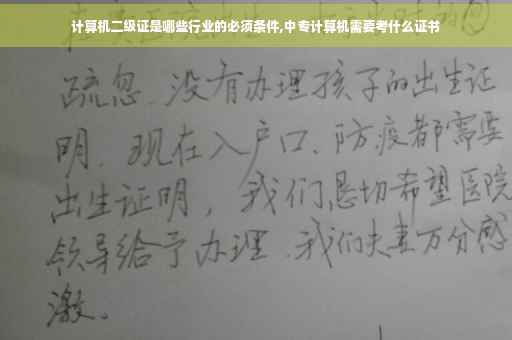 计算机二级证是哪些行业的必须条件,中专计算机需要考什么证书
疏忽.没有办理孩子的出生证
明.现在入户口、防疫都需要
出生证明，我们恳切希望医院
领导给予办理.我们夫妻万分感
激。